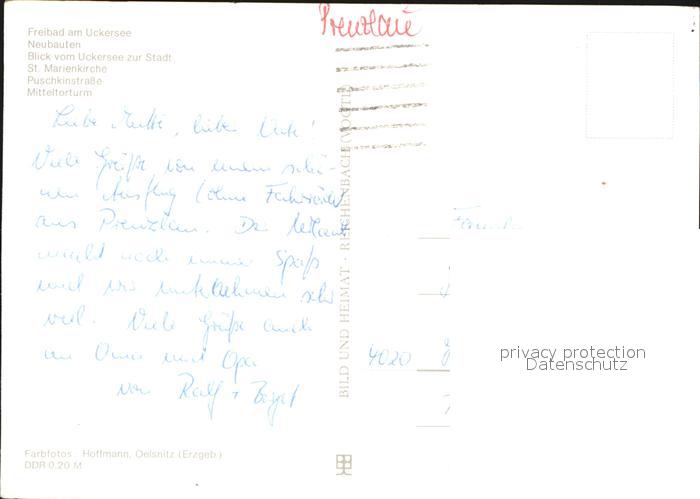 Prenzlau
Freibad am Uckersee
Neubauten
Blick vom Uckersee zur Stadt
St. Marienkirche
Puschkinstraße
Mitteltorturm
Liebe Mutti, lieber Vati!
Viele Grüße von einem schö-
nen Ausflug (ohne Fahrräder)
aus Prenzlau. Der Urlaub
macht noch immer Spaß
und wir unternehmen sehr
viel. Viele Grüße auch
an Oma und Opa
von Ralf + Birgit
BILD UND HEIMAT · REICHENBACH (VOGTL)
Familie
4020
privacy protection
Datenschutz
Farbfotos: Hoffmann, Oelsnitz (Erzgeb.)
DDR 0,20 M